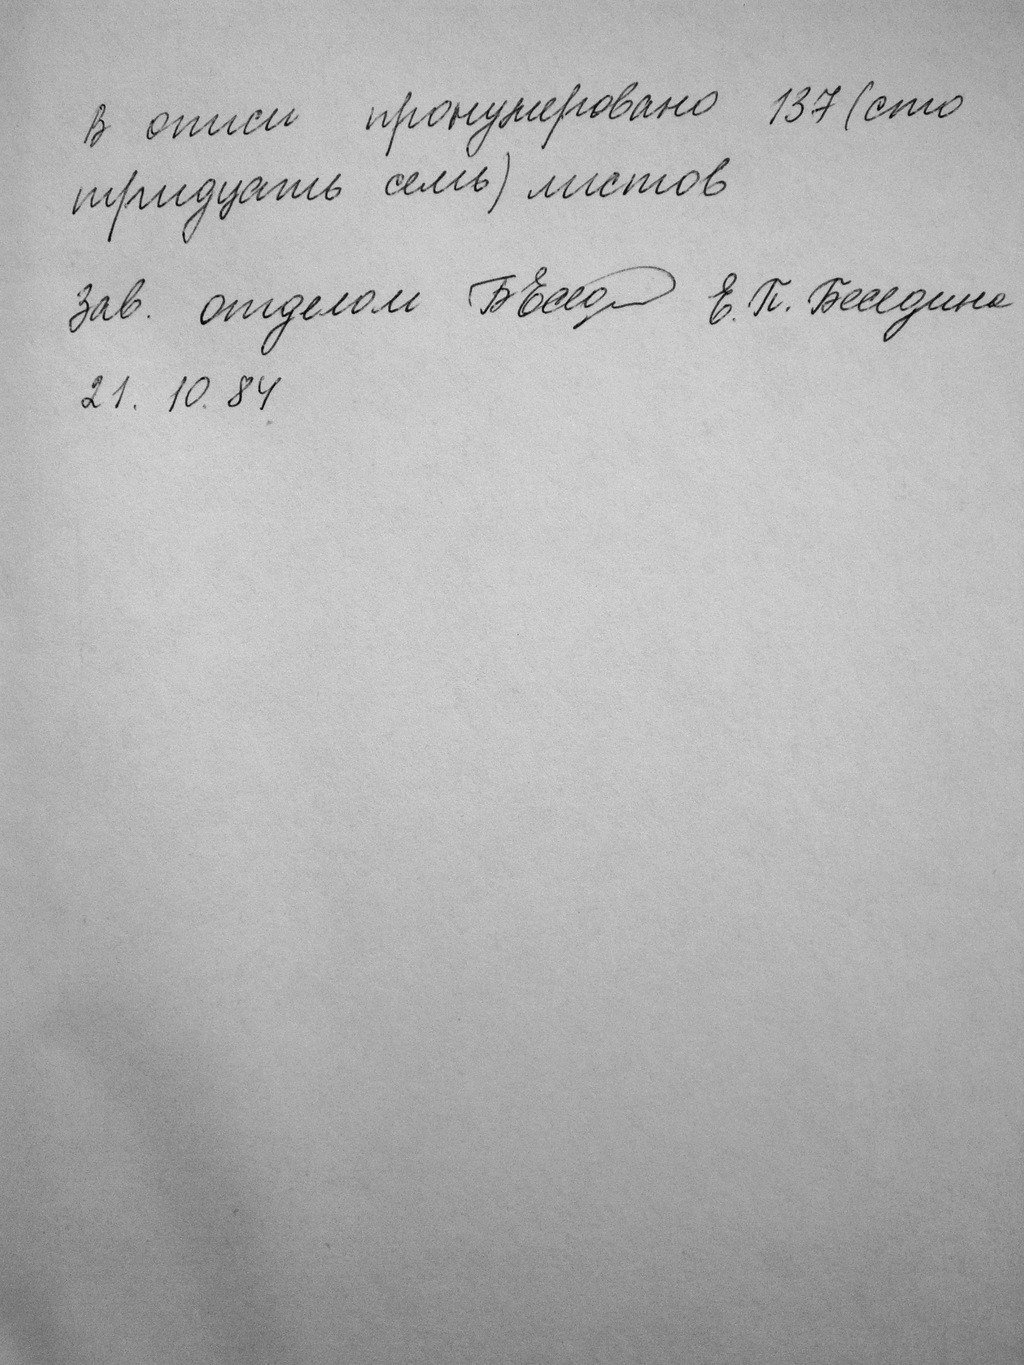 В описи пронумеровано 137 (сто
тридцать семь) листов
Зав. отделом Е.П. Беседина
21. 10. 84